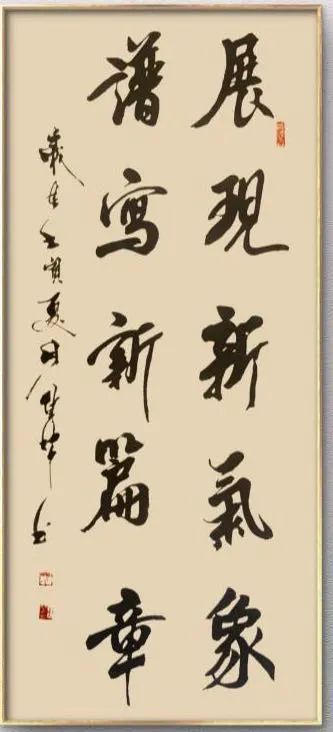 展現新氣象
譜寫新篇章
歲在壬寅夏日